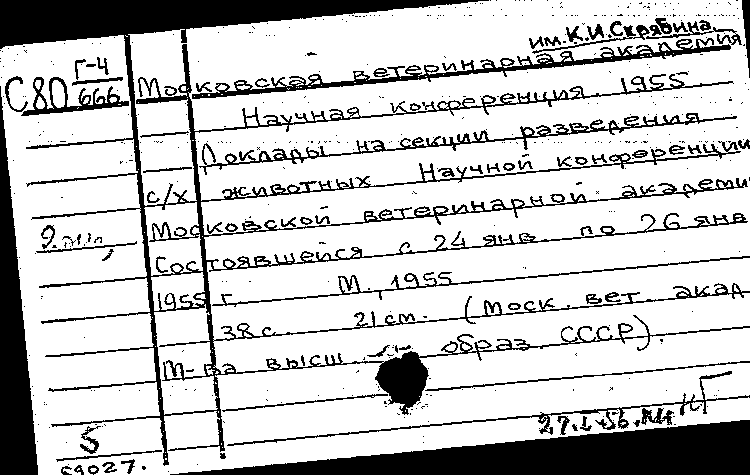 им. К.И. Скрябина.
С80 Г-4/666 Московская ветеринарная академия
Научная конференция. 1955.
Доклады на секции разведения
с/х животных Научной конференции
Московской ветеринарной академии
Состоявшейся с 24 янв. по 26 янв
1955 г. М., 1955
38 с. 21 см. (Моск. вет. акад
М-ва высш. образ. СССР).
5
59027.
27.I-56.